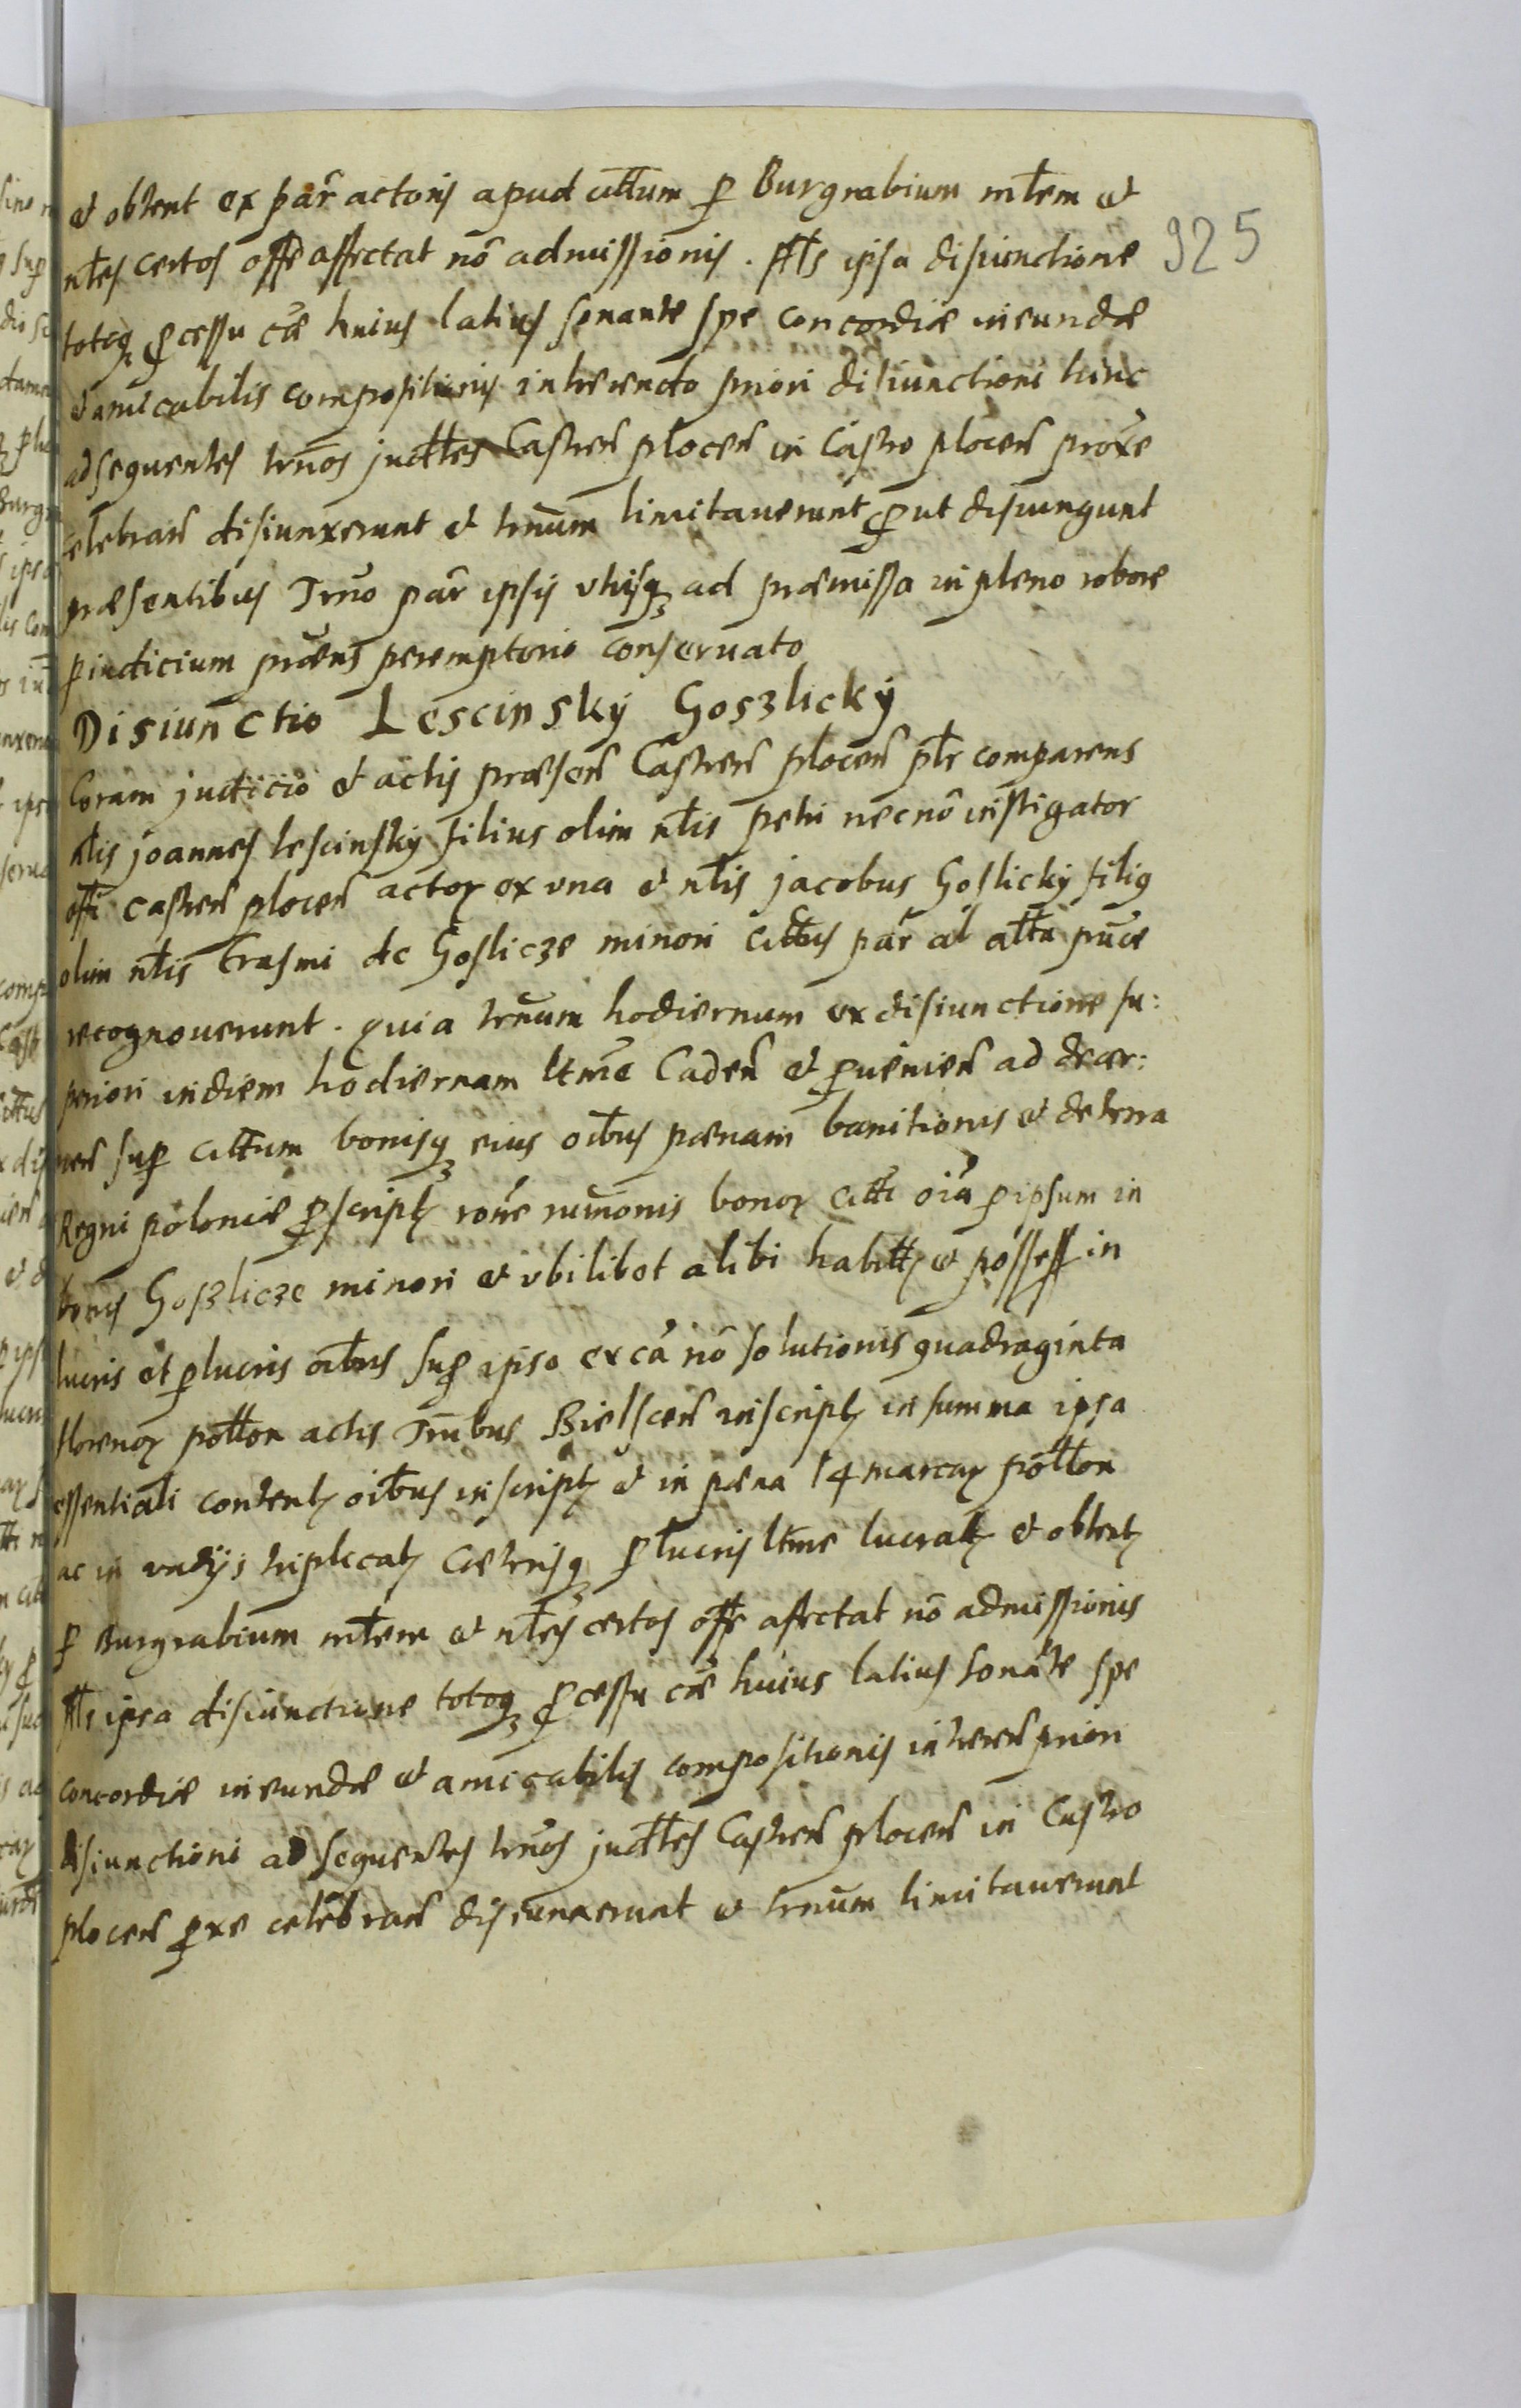 et obtent ex par̃ actoris apud cittum p Burgrabium młem et
nłes certos offe affectat nõ admissionis. Als ipsa disiunctione
925
totoq pcessu cæ huius latius sonante spe concordiæ ineundæ
et amicabilis compositionis inherendo priori disiunctioni hinc
ad sequentes trnos judtles Castreñ ploceñ in Castro ploceñ proxe
celebrañ disiunxerunt et trnum limitauerunt put disiungunt
præsentibus Trno par̃ ipsis vtrisq ad præmissa in pleno robore
p iudicium præns peremptorie conseruato
Disiunctio Lescinsky Goszlicky
Coram judicio et actis præseñ Castreñ ploceñ płr comparens
nłis joannes lescinsky filius olim nłis petri necnõ instigator
offi castreñ ploceñ actor ex vna et nłis jacobus Goslicky filig
olim nłis Erasmi de Goslicze minori cittus par̃ al alta
recognouerunt. quia trnum hodiernum ex disiunctione su:
periori indiem hodiernam ltme Cadeñ et puenieñ ad decer:
neñ sup cittum bonisq eius oibus pænam banitionis et de terra
Regni poloniæ pscript rone rumõnis bonor citti oia p ipsum in
bonis Goszlicze minori et vbilibet alibi habitt et possess in
lucris et plucris oibus sup ipso ex cã nõ solutionis quadraginta
florenor polłon actis Trñbus Bielsceñ inscript in summa ipsa
essentiali content oibus inscript et in pæna 14 marcar polłon
ac in vadijs triplicat cæterisq plucris ltme lucrat et obtent
p Burgrabium młem et nłes certos offe afectat nõ admissionis
Als ipsa disiunctione totoq pcessu cæ huius latius sonãte spe
concordiæ ineundæ et amicabilis compositionis inhereñ priori
disiunctioni ad sequentes trnos judtles Castreñ ploceñ in Castro
ploceñ pxe celebrañ disiunxerunt et trnum limitauerunt